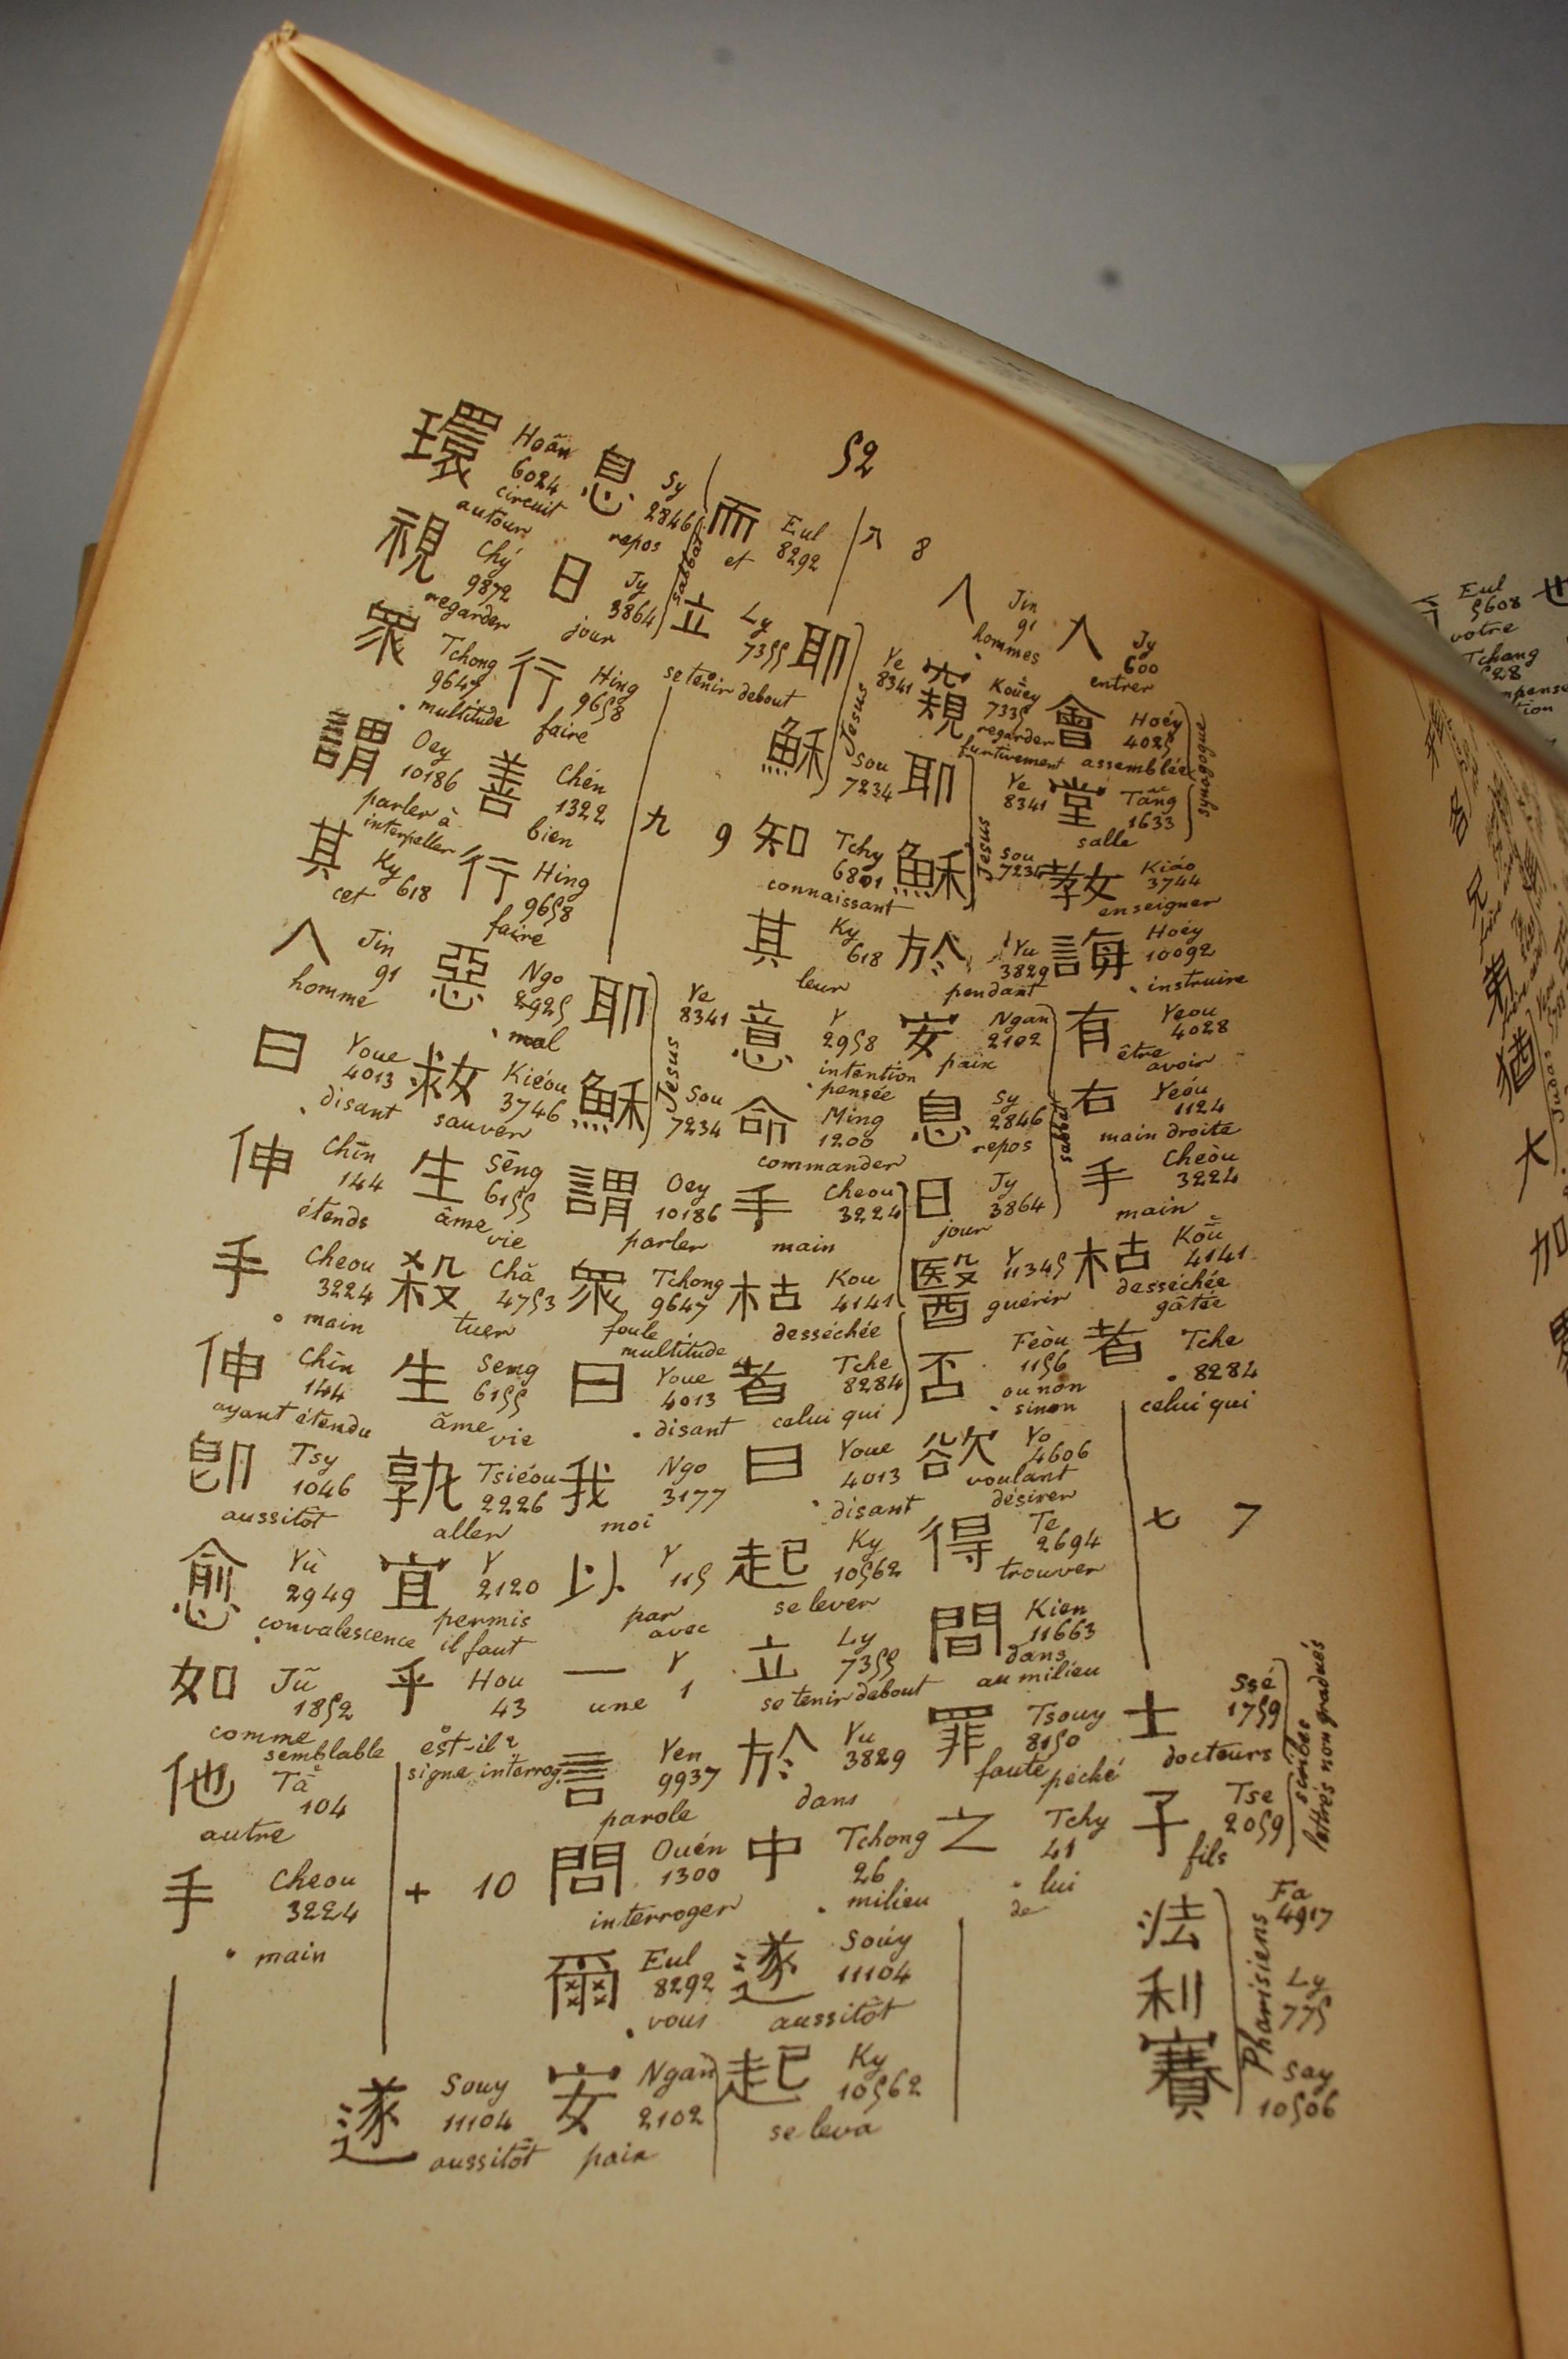 52
入 Jy 600 entrer
會 Hoéy 4025 assemblée
堂 Tãng 1633 salle
synagogue
教 Kiáo 3744 enseigner
誨 Hoéy 10092 instruire
有 Yeou 4028 être avoir
右 Yeóu 1124 main droite
手 Cheòu 3224 main
枯 Koū 4141 desséchée gâtée
者 Tche 8284 celui qui
七 7
士 Ssé 1759 docteurs
子 Tse 2059 fils
scribes
lettrés non gradués
法 Fa 4917
利 Ly 775
賽 Say 10506
Pharisiens
人 Jin 91 hommes
窺 Kouēy 7335 regarder furtivement
耶 Ye 8341
穌 Sou 7234
Jesus
於 Yu 3829 pendant
安 Ngan 2102 paix
息 Sy 2846 repos
日 Jy 3864 jour
sabbat
醫 Y 11345 guérir
否 Feòu 1156 ou non sinon
欲 Yo 4606 voulant désirer
得 Te 2694 trouver
間 Kien 11663 dans au milieu
罪 Tsouy 8150 faute péché
之 Tchy 41 lui de
八 8
耶 Ye 8341
穌 Sou 7234
Jesus
知 Tchy 6801 connaissant
其 Ky 618 leur
意 Y 2958 intention pensée
命 Ming 1200 commander
手 Cheou 3224 main
枯 Kou 4141 desséchée
者 Tche 8284 celui qui
曰 Youe 4013 disant
起 Ky 10562 se lever
立 Ly 7355 se tenir debout
於 Yu 3829 dans
中 Tchong 26 milieu
遂 Soúy 11104 aussitôt
起 Ky 10562 se leva
而 Eul 8292 et
立 Ly 7355 se tenir debout
九 9
耶 Ye 8341
穌 Sou 7234
Jesus
謂 Oey 10186 parler
眾 Tchong 9647 foule multitude
曰 Youe 4013 disant
我 Ngo 3177 moi
以 Y 115 par avec
一 Y 1 une
言 Yen 9937 parole
問 Ouén 1300 interroger
爾 Eul 8292 vous
安 Ngan 2102 paix
息 Sy 2846 repos
日 Jy 3864 jour
sabbat
行 Hing 9658 faire
善 Chén 1322 bien
行 Hing 9658 faire
惡 Ngo 2925 mal
救 Kiéou 3746 sauver
生 Sēng 6155 âme vie
殺 Chă 4753 tuer
生 Seng 6155 âme vie
孰 Tsiéou 2226 aller
宜 Y 2120 permis il faut
乎 Hou 43 est-il? signe interrog.
十 10
遂 Souy 11104 aussitôt
環 Hoân 6024 circuit autour
視 Chý 9872 regarder
眾 Tchong 9647 multitude
謂 Oey 10186 parler à interpeller
其 Ky 618 cet
人 Jin 91 homme
曰 Youe 4013 disant
伸 Chīn 144 étends
手 Cheou 3224 main
伸 Chīn 144 ayant étendu
即 Tsy 1046 aussitôt
愈 Yù 2949 convalescence
如 Jũ 1852 comme semblable
他 Tā 104 autre
手 Cheou 3224 main
Eul 5608 votre
Tchang